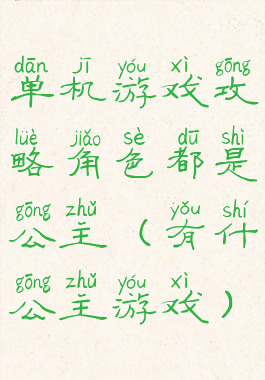 dān jī yóu xì gōng
单机游戏攻
lüè jiǎo sè dū shì
略角色都是
gōng zhǔ yǒu shí
公主（有什
gōng zhǔ yóu xì
公主游戏）